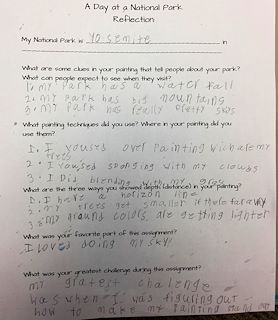 A Day at a National Park
Reflection
My National Park is Yosemite in
What are some clues in your painting that tell people about your park?
What can people expect to see when they visit?
1. my Park has a water fall
2. my Park has big mountains
3. my Park has really pretty skys
What painting techniques did you use? Where in your painting did you
use them?
1. I yoused over Painting with all my
trees
2. I youssed sponging with my clowds
3. I Did blending with my gras
What are the three ways you showed depth (distance) in your painting?
1. I have a horizon line
2. my trees get smaller if there far away
3. my ground colors are getting lighter
What was your favorite part of this assignment?
I loved doing my sky!
What was your greatest challenge during this assignment?
my gratest challenge
was when I was figuring out
how to make my Painting stand out